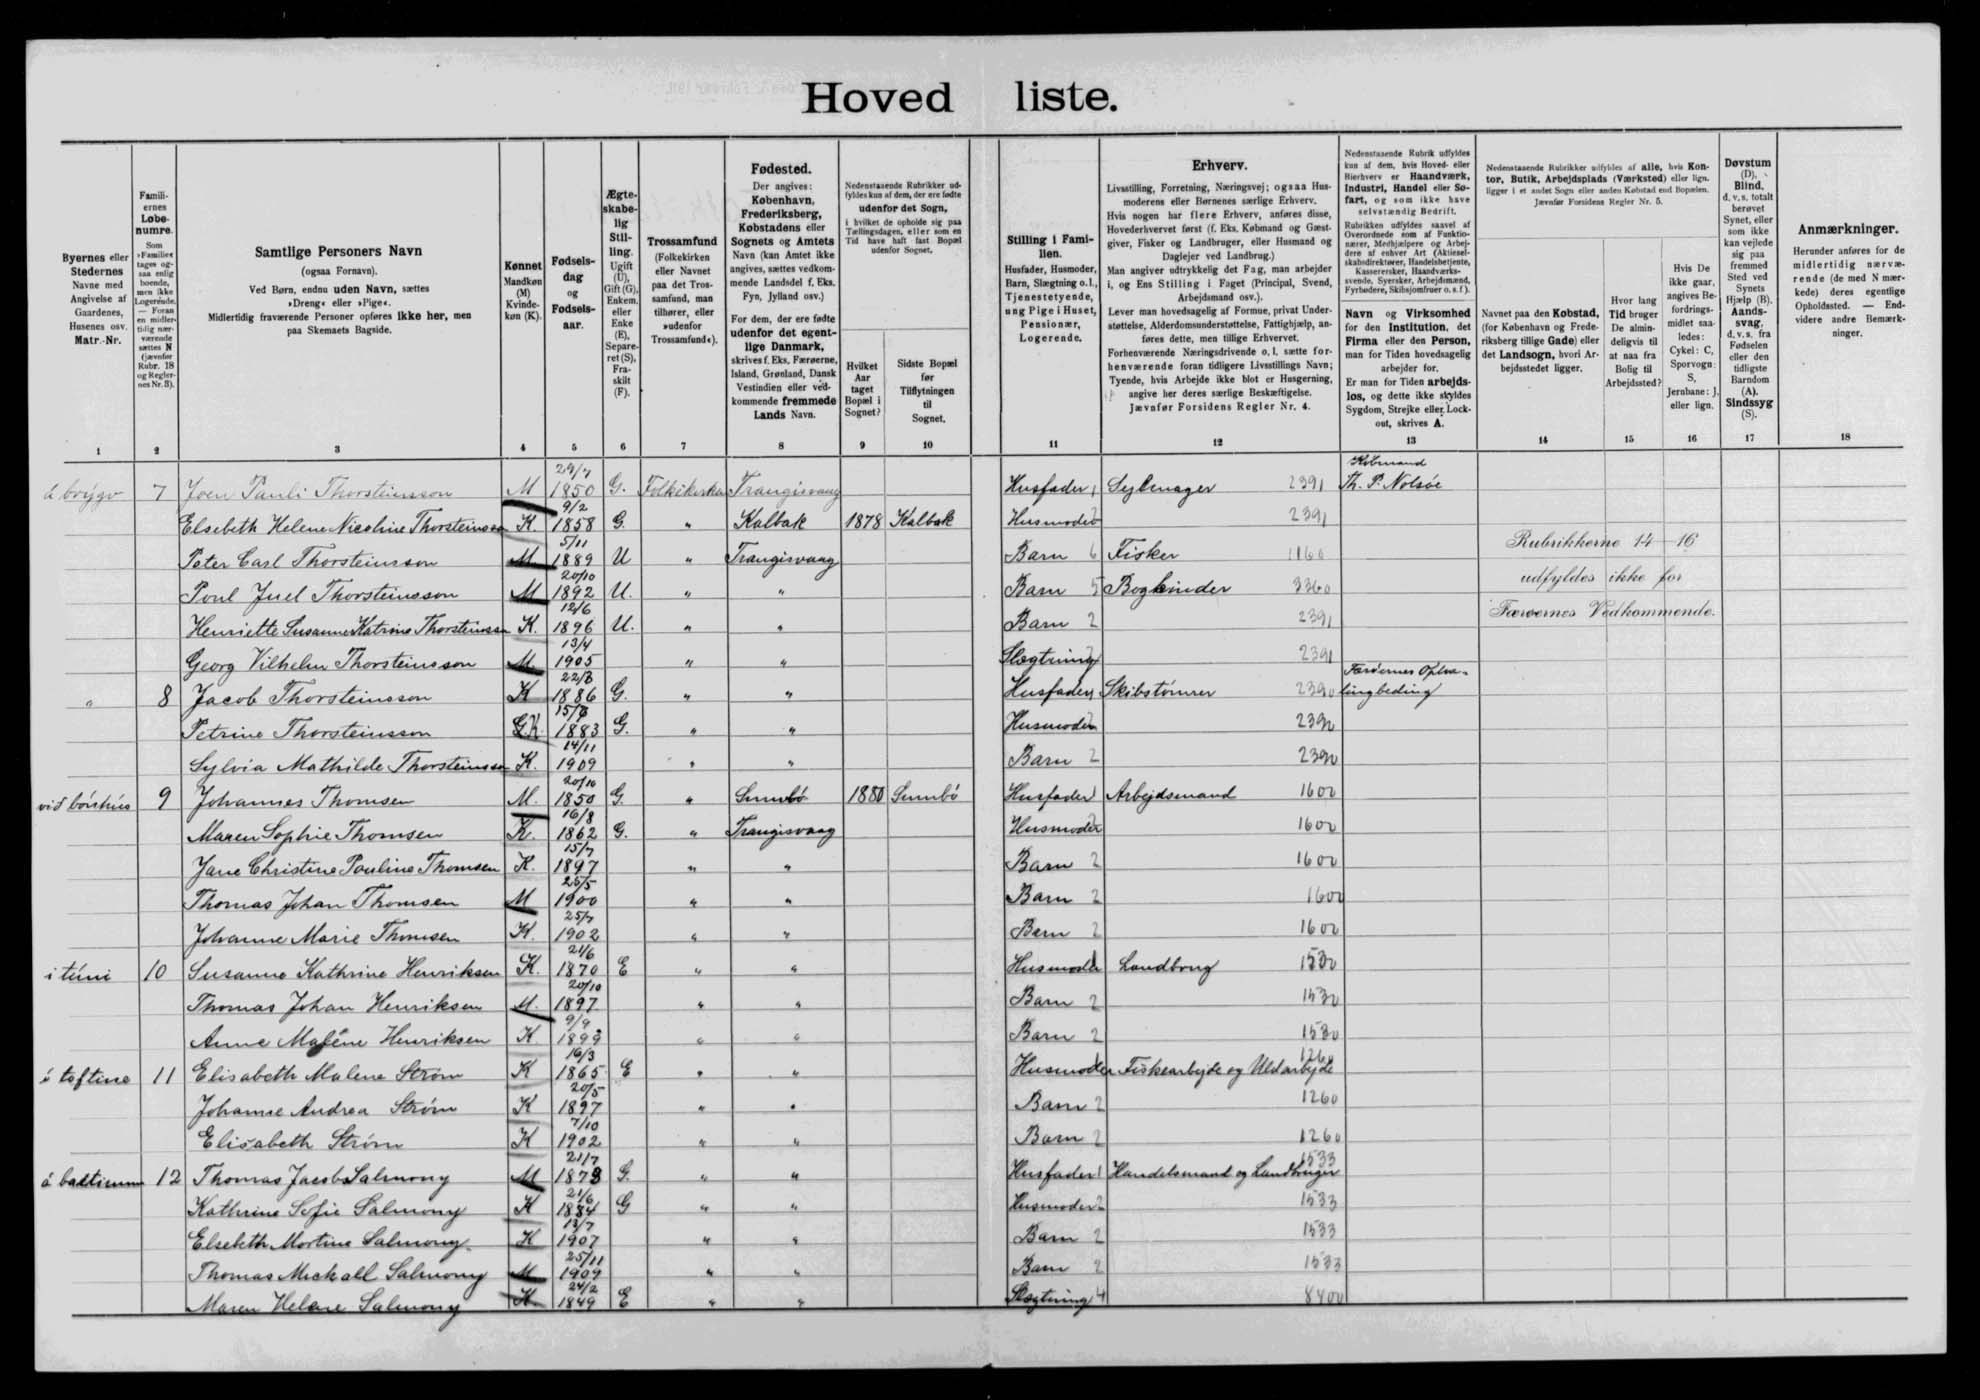 Hovedliste.
Byernes eller Stedernes Navne med Angivelse af Gaardenes, Husenes osv. Matr.-Nr.
Familiernes Løbenumre. Som »Familie« tages ogsaa enlig boende, men ikke Logerende. — Foran en midlertidig nærværende sættes N (jævnfør Rubr. 18 og Regler-nes Nr. 3).
Samtlige Personers Navn
(ogsaa Fornavn).
Ved Børn, endnu uden Navn, sættes
»Dreng« eller »Pige«.
Midlertidig fraværende Personer opføres ikke her, men
paa Skemaets Bagside.
Kønnet Mandkøn (M) Kvindekøn (K).
Fødselsdag og Fødselsaar.
Ægteskabelig Stilling. Ugift (U), Gift (G), Enkem. eller Enke (E), Separeret (S), Fraskilt (F).
Trossamfund (Folkekirken eller Navnet paa det Trossamfund, man tilhører, eller »udenfor Trossamfund«).
Fødested.
Der angives: København, Frederiksberg, Købstadens eller Sognets og Amtets Navn (kan Amtet ikke angives, sættes vedkommende Landsdel f. Eks. Fyn, Jylland osv.)
For dem, der ere fødte udenfor det egentlige Danmark, skrives f. Eks. Færøerne, Island, Grønland, Dansk Vestindien eller vedkommende fremmede Lands Navn.
Nedenstaaende Rubrikker udfyldes kun af dem, der ere fødte udenfor det Sogn, i hvilket de opholde sig paa Tællingsdagen, eller som en Tid have haft fast Bopæl udenfor Sognet.
Hvilket Aar taget Bopæl i Sognet?
Sidste Bopæl før Tilflytningen til Sognet.
Stilling i Familien.
Husfader, Husmoder, Barn, Slægtning o.l., Tjenestetyende, ung Pige i Huset, Pensionær, Logerende.
Erhverv.
Livsstilling, Forretning, Næringsvej; ogsaa Husmoderens eller Børnenes særlige Erhverv.
Hvis nogen har flere Erhverv, anføres disse, Hovederhvervet først (f. Eks. Købmand og Gæstgiver, Fisker og Landbruger, eller Husmand og Daglejer ved Landbrug.)
Man angiver udtrykkelig det Fag, man arbejder i, og Ens Stilling i Faget (Principal, Svend, Arbejdsmand osv.).
Lever man hovedsagelig af Formue, privat Understøttelse, Alderdomsunderstøttelse, Fattighjælp, anføres dette, men tillige Erhvervet.
Forhenværende Næringsdrivende o. l. sætte forhenværende foran tidligere Livsstillings Navn; Tyende, hvis Arbejde ikke blot er Husgerning, angive her deres særlige Beskæftigelse.
Jævnfør Forsidens Regler Nr. 4.
Nedenstaaende Rubrik udfyldes kun af dem, hvis Hoved- eller Bierhverv er Haandværk, Industri, Handel eller Søfart, og som ikke have selvstændig Bedrift.
Rubrikken udfyldes saavel af Overordnede som af Funktionærer, Medhjælpere og Arbejdere af enhver Art (Aktieselskabsdirektører, Handelsbetjente, Kasserersker, Haandværkssvende, Syersker, Arbejdsmænd, Fyrbødere, Skibsjomfruer o. s. f.).
Navn og Virksomhed for den Institution, det Firma eller den Person, man for Tiden hovedsagelig arbejder for.
Er man for Tiden arbejdsløs, og dette ikke skyldes Sygdom, Strejke eller Lockout, skrives A.
Nedenstaaende Rubrikker udfyldes af alle, hvis Kontor, Butik, Arbejdsplads (Værksted) eller lign. ligger i et andet Sogn eller anden Købstad end Bopælen.
Jævnfør Forsidens Regler Nr. 5.
Navnet paa den Købstad, (for København og Frederiksberg tillige Gade) eller det Landsogn, hvori Arbejdsstedet ligger.
Hvor lang Tid bruger De almindeligvis til at naa fra Bolig til Arbejdssted?
Hvis De ikke gaar, angives Befordringsmidlet saaledes: Cykel: C, Sporvogn: S, Jernbane: J, eller lign.
Døvstum (D), Blind, d. v. s. totalt berøvet Synet, eller som ikke kan vejlede sig paa fremmed Sted ved Synets Hjælp (B). Aandssvag, d. v. s. fra Fødselen eller den tidligste Barndom (A). Sindssyg (S).
Anmærkninger.
Herunder anføres for de midlertidig nærværende (de med N mærkede) deres egentlige Opholdssted. — Endvidere andre Bemærkninger.
1 2 3 4 5 6 7 8 9 10 11 12 13 14 15 16 17 18
7 Joen Pauli Thorsteinsson M 29/7 1850 G. Folkekirken Trangisvaag Husfader 1 2391 Købmand Th. P. Nolsøe
Elsebeth Helene Nicoline Thorsteinsson K. 9/2 1858 G. " Kalbak 1878 Kalbak Husmoder 2 2391
Peter Carl Thorsteinsson M 5/11 1889 U " Trangisvaag Barn 6 Fisker 1160
Poul Juel Thorsteinsson M 20/10 1892 U. " " Barn 5 Bogbinder 3360
Henriette Susanne Katrine Thorsteinsson K. 12/6 1896 U. " " Barn 2 2391
Georg Vilhelm Thorsteinsson M. 13/4 1905 " " Slægtning 2391
Rubrikkerne 14-16
udfyldes ikke for
Færøernes Vedkommende.
" 8 Jacob Thorsteinsson K 1886 G. " " Husfader 1 Skibstømrer 2390
Petrine Thorsteinsson G.K. 1883 G. " " Husmoder 2390
Sylvia Mathilde Thorsteinsson K. 14/11 1909 " " Barn 2 2390
við bønhús 9 Johannes Thomsen M. 20/10 1850 G. " Sumbö 1880 Sumbö Husfader 1 Arbejdsmand 1600
Maren Sophie Thomsen K. 16/8 1862 G. " Trangisvaag Husmoder 1600
Jane Christine Pouline Thomsen K. 15/7 1897 " " Barn 2 1600
Thomas Johan Thomsen M 25/5 1900 " " Barn 2 1600
Johanne Marie Thomsen K. 25/7 1902 " " Barn 2 1600
i túni 10 Susanne Kathrine Henriksen K. 21/6 1870 E " " Husmoder 1 Landbrug 1530
Thomas Johan Henriksen M. 20/10 1897 " " Barn 2 1530
Anne Maléne Henriksen K 9/9 1899 " " Barn 2 1530
11 Elisabeth Malene Strøm K 16/3 1865 E " " Husmoder Fiskearbejde og Uldarbejde 1260
Johanne Andrea Strøm K 20/5 1897 " " Barn 2 1260
Elisabeth Strøm K 7/10 1902 " " Barn 2 1260
12 Thomas Jacob Salmony M 21/7 1873 G. " " Husfader 1 Handelsmand og Landbruger 1533
Kathrine Sofie Salmony K 21/6 1884 G " " Husmoder 2 1533
Elsebeth Mortine Salmony K 13/7 1907 " " Barn 2 1533
Thomas Mickall Salmony M 25/11 1909 " " Barn 2 1533
Maren Helene Salmony K. 24/2 1849 E " " Slægtning 4 8400